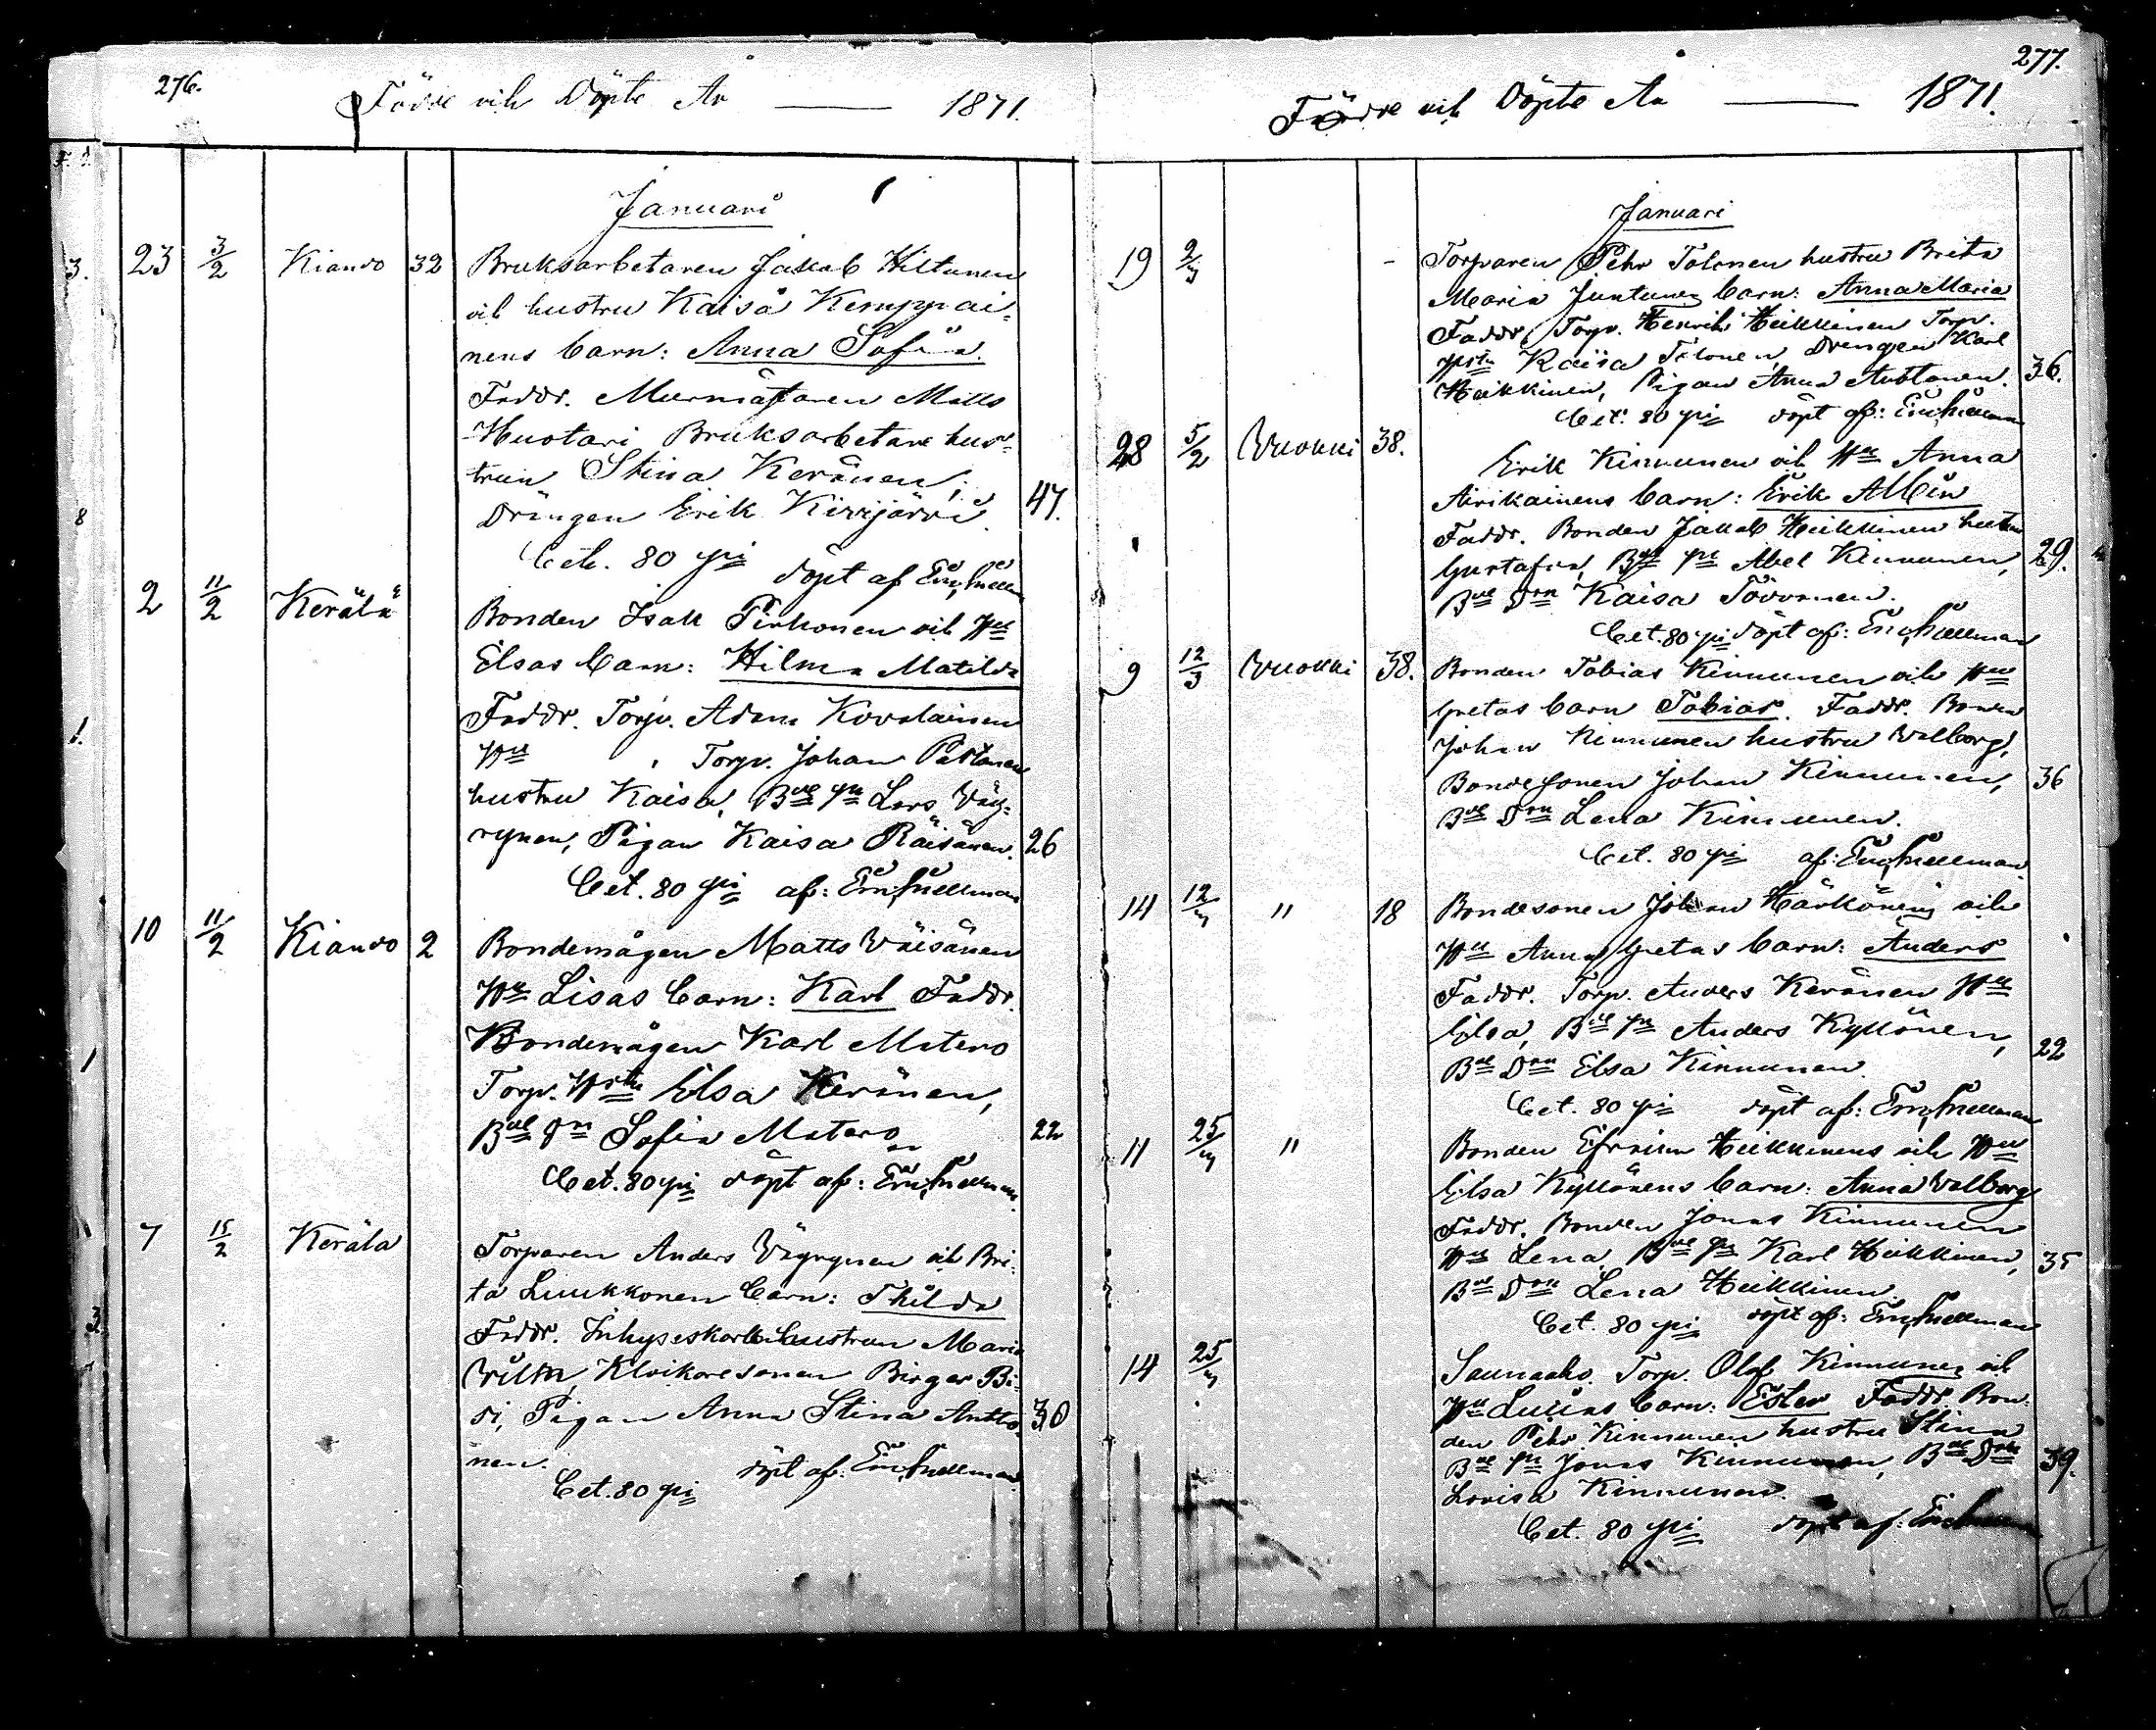 276.
Födde och Döpte År — 1871.
Januari
23 3/2 Kianto 32 Bruksarbetaren Jakob Hiltunen
och hustru Kaisa Kemppai-
nens barn: Anna Sofia.
Faddr. Murmästaren Matts
Huotari, Bruksarbetare hus-
trun Stina Keränen,
Drängen Erik Kivijärvi. 47.
Bet. 80 pi döpt af Em. Snellman
2 11/2 Kerälä Bonden Isak Pirhonen och Hu
Elsas barn: Hilma Matilda
Faddr. Torp. Adam Kovalainen
Hu , Torp. Johan Partanen
hustru Kaisa, Bde sn Lars Väy-
rynen, Pigan Kaisa Räisänen. 26
Bet. 80 pi af: Em. Snellman
10 11/2 Kianto 2 Bondemågen Matts Väisänen
Hu Lisas barn: Karl Faddr.
Bondemågen Karl Matero
Torp. Hstu Elsa Keränen,
Bde Dn Sofia Matero 22
Bet. 80 pi döpt af: Em. Snellman
7 15/2 Keräla Torparen Anders Väyrynen och Bri-
ta Luukkonen barn: Thilda
Faddr. Inhyseskarls hustrun Maria
Klockaresonen Birger Bi-
si, Pigan Anna Stina Antto- 30
nen.
Bet. 80 pi döpt af: Em. Snellman
277.
Födde och Döpte År — 1871.
Januari
19 2/3 - Torparen Pehr Tolonen hustru Brita
Maria Juntunen barn: Anna Maria
Faddr. Torp. Henrik Heikkinen Torp.
Kaisa Tolonen, Drengen Karl
Heikkinen, Pigan Anna 36.
Bet. 80 pi döpt af: Em. Snellman
28 5/2 Wuokki 38. Erik Kinnunen och Hu Anna
Airikainens barn: Erik Albin
Faddr. Bonden Jakob Heikkinen hustru
Gustafva, Bde sn Abel Kinnunen, 29.
Bde Dtn Kaisa
Bet. 80 pi döpt af: Em. Snellman
9 12/3 Wuokki 38. Bonden Tobias Kinnunen och Hu
Gretas barn Tobias. Faddr. Bonden
Johan Kinnunen hustru Walborg,
Bondesonen Johan Kinnunen, 36
Bde Dtn Lena Kinnunen.
Bet. 80 pi af: Em. Snellman
14 12/3 " 18 Bondesonen Johan Härkönens och
Hu Anna Gretas barn: Anders
Faddr. Torp. Anders Keränen Hu
Elsa, Bde sn Anders Kyllönen, 22
Bde Dtn Elsa Kinnunen.
Bet. 80 pi döpt af: Em. Snellman
11 25/3 " Bonden Efraim Heikkinens och Hu
Elsa Kyllönens barn: Anna Walborg
Faddr. Bonden Jonas Kinnunen
Hu Lena, Bde sn Karl Heikkinen, 35
Bde Dtn Lena Heikkinen.
Bet. 80 pi döpt af: Em. Snellman
14 25/3 Saunaaho. Torp. Olof Kinnunen och
Hu barn: Ester Faddr. Bon-
den Pehr Kinnunen hustru Stina
Bde sn Jonas Kinnunen, Bde Dtn 39.
Lovisa Kinnunen.
Bet. 80 pi döpt af: Em. Snellman